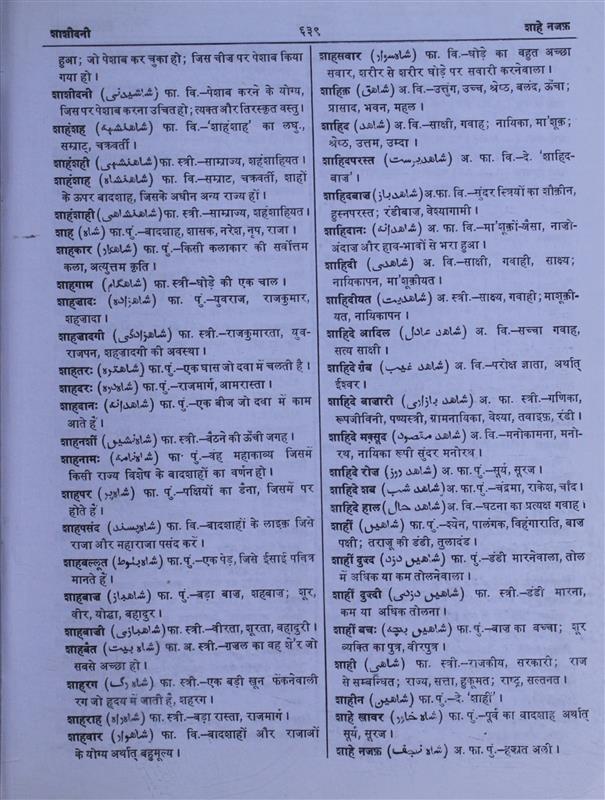 शाशीदनी
६३९
शाहे नजफ़
हुआ; जो पेशाब कर चुका हो; जिस चीज पर पेशाब किया
गया हो।
शाशीदनी (شاشیدنی) फा. वि.–पेशाब करने के योग्य,
जिस पर पेशाब करना उचित हो; त्यक्त और तिरस्कृत वस्तु।
शाहंशह (شاهنشہ) फा. वि.–'शाहंशाह' का लघु.,
सम्राट्, चक्रवर्ती।
शाहंशही (شاهنشہی) फा. स्त्री.–साम्राज्य, शहंशाहियत।
शाहंशाह (شاهنشاہ) फा. वि.–सम्राट, चक्रवर्ती, शाहों
के ऊपर बादशाह, जिसके अधीन अन्य राज्य हों।
शाहंशाही (شاهنشاهی) फा. स्त्री.–साम्राज्य, शहंशाहियत।
शाह (شاہ) फा. पुं.–बादशाह, शासक, नरेश, नृप, राजा।
शाहकार (شاهکار) फा. पुं.–किसी कलाकार की सर्वोत्तम
कला, अत्युत्तम कृति।
शाहगाम (شاهگام) फा. स्त्री–घोड़े की एक चाल।
शाहज़ादः (شاهزادہ) फा. पुं.–युवराज, राजकुमार,
शहज़ादा।
शाहज़ादगी (شاهزادگی) फा. स्त्री.–राजकुमारता, युव-
राजपन, शहज़ादगी की अवस्था।
शाहतरः (شاهترہ) फा. पुं.–एक घास जो दवा में चलती है।
शाहदरः (شاهدرہ) फा. पुं.–राजमार्ग, आमरास्ता।
शाहदानः (شاهدانہ) फा. पुं.–एक बीज जो दवा में काम
आते हैं।
शाहनशीं (شاہ نشیں) फा. स्त्री.–बैठने की ऊँची जगह।
शाहनामः (شاہنامہ) फा. पुं.–वह महाकाव्य जिसमें
किसी राज्य विशेष के बादशाहों का वर्णन हो।
शाहपर (شاہپر) फा. पुं.–पक्षियों का डैना, जिसमें पर
होते हैं।
शाहपसंद (شاہ پسند) फा. वि.–बादशाहों के लाइक़ जिसे
राजा और महाराजा पसंद करें।
शाहबल्लूत (شاہ بلوط) फा. पुं.–एक पेड़, जिसे ईसाई पवित्र
मानते हैं।
शाहबाज (شاهباز) फा. पुं.–बड़ा बाज, शहबाज; शूर,
वीर, योद्धा, बहादुर।
शाहबाजी (شاهبازی) फा. स्त्री.–वीरता, शूरता, बहादुरी।
शाहबैत (شاہ بیت) फा. अ. स्त्री.–ग़जल का वह शे'र जो
सबसे अच्छा हो।
शाहरग (شاہ رگ) फा. स्त्री.–एक बड़ी खून फेंकनेवाली
रग जो हृदय में जाती है, शहरग।
शाहराह (شاهراہ) फा. स्त्री.–बड़ा रास्ता, राजमार्ग।
शाहवार (شاهوار) फा. वि.–बादशाहों और राजाओं
के योग्य अर्थात् बहुमूल्य।
शाहसवार (شاہ سوار) फा. वि.–घोड़े का बहुत अच्छा
सवार, शरीर से शरीर घोड़े पर सवारी करनेवाला।
शाहिक़ (شاهق) अ. वि.–उत्तुंग, उच्च, श्रेष्ठ, बलंद, ऊँचा;
प्रासाद, भवन, महल।
शाहिद (شاهد) अ. वि.–साक्षी, गवाह; नायिका, मा'शूक़;
श्रेष्ठ, उत्तम, उम्दा।
शाहिदपरस्त (شاهدپرست) अ. फा. वि.–दे. 'शाहिद-
बाज'।
शाहिदबाज़ (شاهدباز) अ. फा. वि.–सुंदर स्त्रियों का शौक़ीन,
हुस्नपरस्त; रंडीबाज, वेश्यागामी।
शाहिदानः (شاهدانہ) अ. फा. वि.–मा'शूक़ों-जैसा, नाजो-
अंदाज और हाव-भावों से भरा हुआ।
शाहिदी (شاهدی) अ. वि.–साक्षी, गवाही, साक्ष्य;
नायिकापन, मा'शूक़ीयत।
शाहिदीयत (شاهدیت) अ. स्त्री.–साक्ष्य, गवाही; माशूक़ी-
यत, नायिकापन।
शाहिदे आदिल (شاهد عادل) अ. वि.–सच्चा गवाह,
सत्य साक्षी।
शाहिदे ग़ैब (شاهد غیب) अ. वि.–परोक्ष ज्ञाता, अर्थात्
ईश्वर।
शाहिदे बाजारी (شاهد بازاری) अ. फा. स्त्री.–गणिका,
रूपजीविनी, पण्यस्त्री, ग्रामनायिका, वेश्या, तवाइफ़, रंडी।
शाहिदे मक़्सूद (شاهد مقصود) अ. वि.–मनोकामना, मनो-
रथ, नायिका रूपी सुंदर मनोरथ।
शाहिदे रोज (شاهد روز) अ. फा. पुं.–सूर्य, सूरज।
शाहिदे शब (شاهد شب) अ. फा. पुं.–चंद्रमा, राकेश, चाँद।
शाहिदे हाल (شاهد حال) अ. वि.–घटना का प्रत्यक्ष गवाह।
शाहीं (شاهیں) फा. पुं.–श्येन, पालंगक, विहंगाराति, बाज
पक्षी; तराजू की डंडी, तुलादंड।
शाहीं दुज़्द (شاهیں دزد) फा. पुं.–डंडी मारनेवाला, तोल
में अधिक या कम तोलनेवाला।
शाहीं दुज़्दी (شاهیں دزدی) फा. स्त्री.–डंडी मारना,
कम या अधिक तोलना।
शाहीं बचः (شاهیں بچہ) फा. पुं.–बाज का बच्चा; शूर
व्यक्ति का पुत्र, वीरपुत्र।
शाही (شاهی) फा. स्त्री.–राजकीय, सरकारी; राज
से सम्बन्धित; राज्य, सत्ता, हुकूमत; राष्ट्र, सल्तनत।
शाहीन (شاهین) फा. पुं.–दे. 'शाहीं'।
शाहे ख़ावर (شاہ خاور) फा. पुं.–पूर्व का बादशाह अर्थात्
सूर्य, सूरज।
शाहे नजफ़ (شاہ نجف) अ. फा. पुं.–हज़्रत अली।